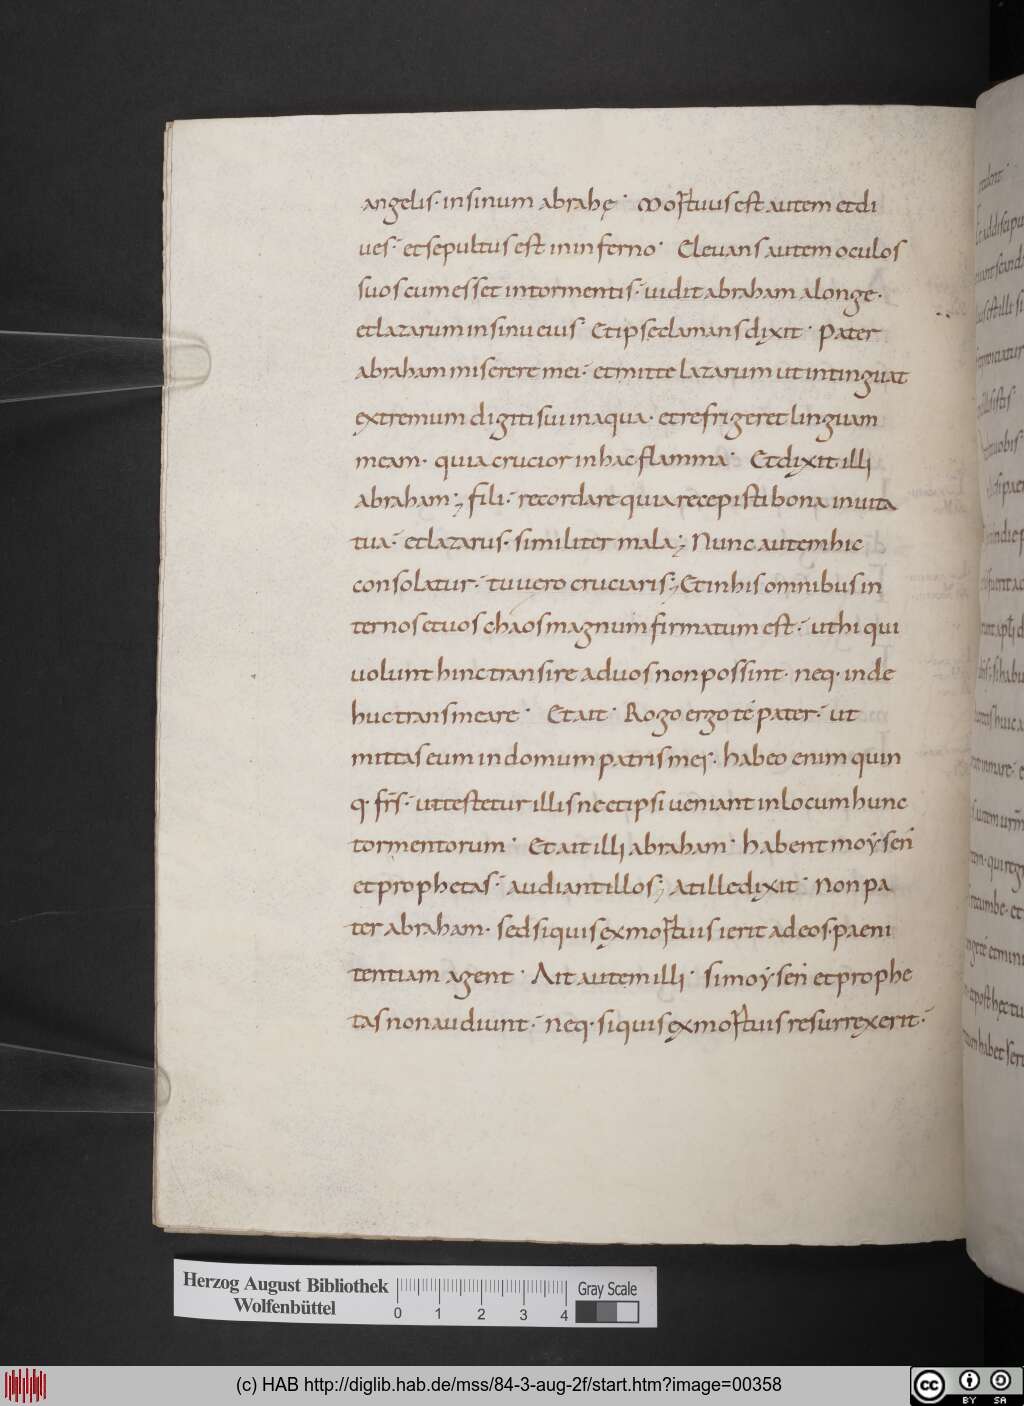 angelis· in sinum abrahę· Mortuus est autem et di
ues· et sepultus est in inferno· Eleuans autem oculos
suos cum esset in tormentis· uidit abraham a longe·
et lazarum in sinu eius Et ipse clamans dixit· Pater
abraham miserere mei· et mitte lazarum ut intinguat
extremum digiti sui in aqua· et refrigeret linguam
meam· quia crucior in hac flamma· Et dixit illi
abraham; fili· recordare quia recepisti bona in uita
tua· et lazarus· similiter mala; Nunc autem hic
consolatur· tu uero cruciaris; Et in his omnibus in
ter nos et uos chaos magnum firmatum est· ut hi qui
uolunt hinc transire ad uos non possint· neq· inde
huc transmeare· Et ait· Rogo ergo te pater· ut
mittas eum in domum patris mei· habeo enim quin
q· frs̄· ut testetur illis ne et ipsi ueniant in locum hunc
tormentorum· Et ait illi abraham· habent moẏsen
et prophetas· audiant illos; At ille dixit· Non pa
ter abraham· sed si quis ex mortuis ierit ad eos· paeni
tentiam agent· Ait autem illi· si moẏsen et prophe
tas non audiunt· neq· si quis ex mortuis resurrexerit·
Herzog August Bibliothek
Wolfenbüttel
0 1 2 3 4
Gray Scale
(c) HAB http://diglib.hab.de/mss/84-3-aug-2f/start.htm?image=00358
cc BY SA